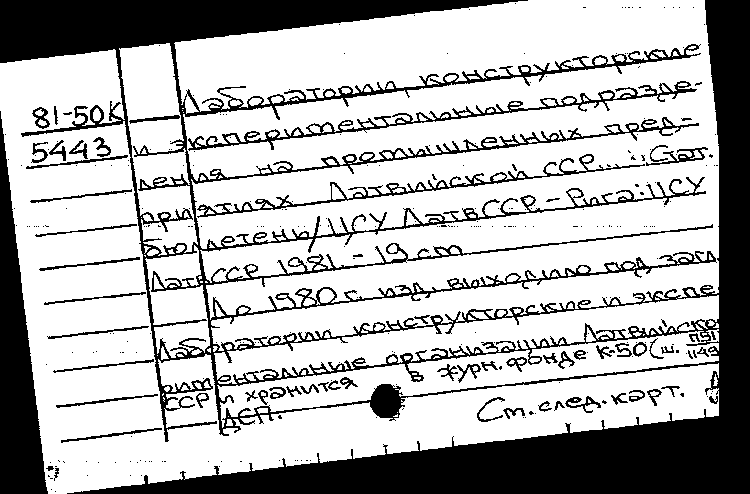 81-50К
5443
Лаборатории, конструкторские
и экспериментальные подразде-
ления на промышленных пред-
приятиях Латвийской ССР... : Стат.
бюллетень/ЦСУ ЛатвССР.- Рига: ЦСУ
ЛатвССР, 1981. - 19 cm
До 1980 г. изд. выходило под загл.
Лаборатории, конструкторские и экспе
риментальные организации Латвийско
ССР и хранится в журн. фонде К-50 (ш.
ДСП.
См. след. карт.